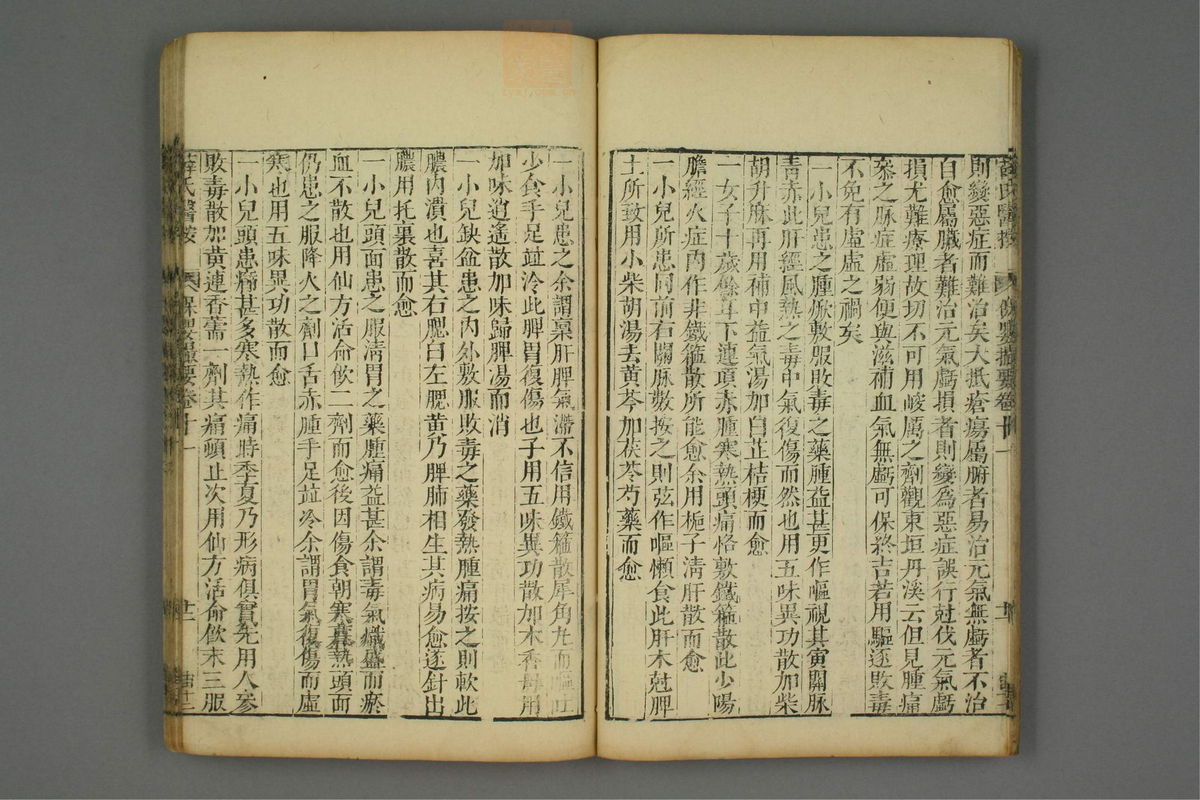 則變惡症而難治矣大抵瘡瘍屬腑者易治元氣無虧者不治
自愈屬臟者難治元氣虧損者則變為惡症誤行尅伐元氣虧
損尤難療理故切不可用峻厲之劑觀東垣丹溪云但見腫痛
叅之脉症虛弱便與滋補血氣無虧可保終吉若用驅逐敗毒
不免有虛虛之禍矣
一小兒患之腫㷔敷服敗毒之藥腫益甚更作嘔視其寅關脉
青赤此肝經風熱之毒中氣復傷而然也用五味異功散加柴
胡升麻再用補中益氣湯加白芷桔梗而愈
一女子十歲餘耳下連項赤腫寒熱頭痛恪敷鐵箍散此少陽
膽經火症內作非鐵箍散所能愈余用梔子清肝散而愈
一小兒所患同前右關脉數按之則弦作嘔懶食此肝木尅脾
土所致用小柴胡湯去黃芩加茯苓芍藥而愈
一小兒患之余謂稟肝脾氣滯不信用鐵箍散犀角丸而嘔吐
少食手足竝冷此脾胃復傷也子用五味異功散加木香母用
加味逍遙散加味歸脾湯而消
一小兒缺盆患之內外敷服敗毒之藥發熱腫痛按之則軟此
膿內潰也喜其右腮白左腮黃乃脾肺相生其病易愈遂針出
膿用托裏散而愈
一小兒頭面患之服清胃之藥腫痛益甚余謂毒氣熾盛而瘀
血不散也用仙方活命飲二劑而愈後因傷食朝寒暮熱頭面
仍患之服降火之劑口舌赤腫手足竝冷余謂胃氣復傷而虛
寒也用五味異功散而愈
一小兒頭患癤甚多寒熱作痛時季夏乃形病俱實先用人參
敗毒散加黃連香薷一劑其痛頓止次用仙方活命飲末三服
薛氏醫按 保嬰撮要卷十一 十二